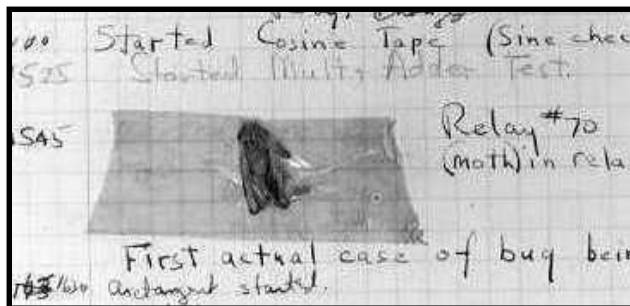 Started Cosine Tape (Sine chec
1525 Started Mult, Adder Test.
1545 Relay #70
(moth) in rela
First actual case of bug bein
arctangent started.